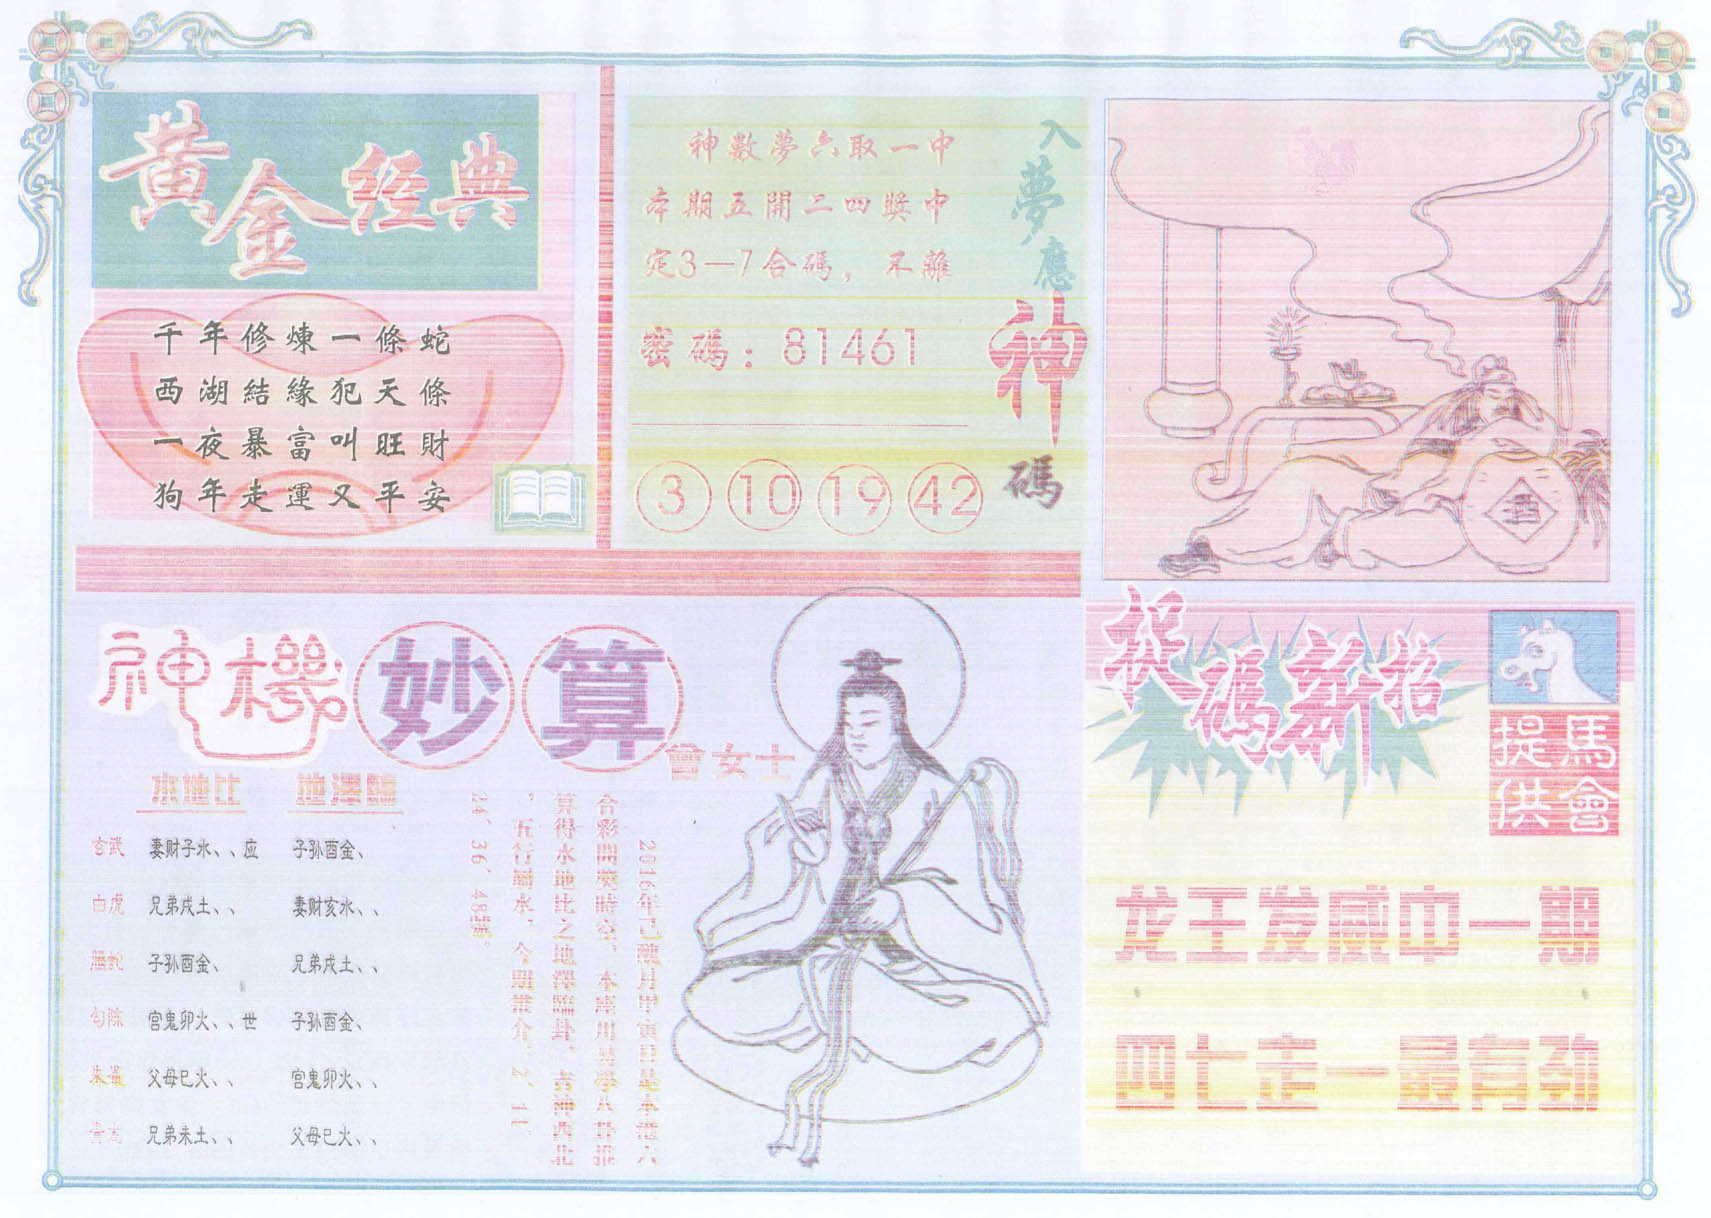 黃金经典
千年修煉一條蛇
西湖結緣犯天條
一夜暴富叫旺財
狗年走運又平安
入夢應神碼
神數夢六取一中
本期五開二四獎中
定3—7合碼，不離
密碼：81461
3 10 19 42
酒
神機妙算
曾女士
水地比 地澤臨
玄武 妻财子水、、应 子孙酉金、
白虎 兄弟戍土、、 妻财亥水、、
螣蛇 子孙酉金、 兄弟戍土、、
勾陈 宫鬼卯火、、世 子孙酉金、
朱雀 父母巳火、、 宫鬼卯火、、
青龙 兄弟未土、、 父母巳火、、
2016年己
合彩開獎時空，本
算得水地比之地澤臨卦，吉神西北
，五行屬水，今期推介：2、11、
24、36、48號。
捉碼新招
馬會
捉供
龙王发威中一期
四七走一最有劲